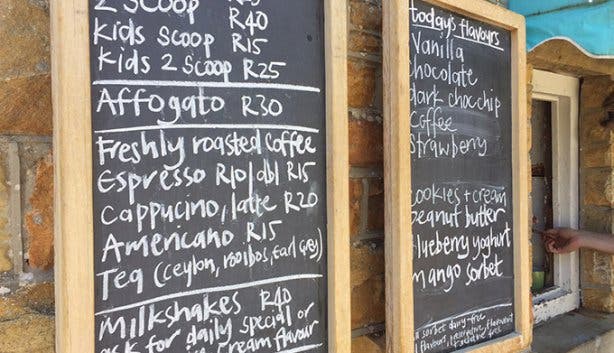 2 Scoop
R40
Kids Scoop R15
Kids 2 Scoop R25
Affogato R30
Freshly roasted coffee
Espresso R10/dbl R15
Cappucino, latte R20
Americano R15
Tea (ceylon, rooibos, Earl Grey)
Milkshakes R40
ask for daily special or
cream flavour
today's flavours
Vanilla
Chocolate
dark choc chip
coffee
strawberry
cookies + cream
peanut butter
blueberry yoghurt
mango sorbet
all sorbet dairy-free